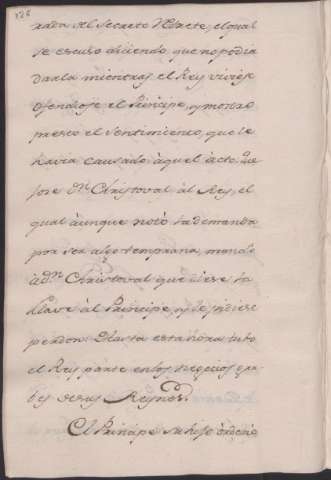 126
rada del Secreto Retrete, el qual
se escusò diciendo que no podia
darla mientras el Rey viviese
Ofendiose el Principe, y mostrò
presto el Sentimiento, que le
havia causado àquel acto.
Dn. Christoval àl Rey, el
qual àunque notò la demanda
por ser algo temprana, mandò
à Dn. Christoval que diese la
Llave àl Principe, y le pidiese
perdon. Hasta esta hora tubo
el Rey parte en los negocios gra
bes de sus Reynos.
El Principe su hijo ordenò